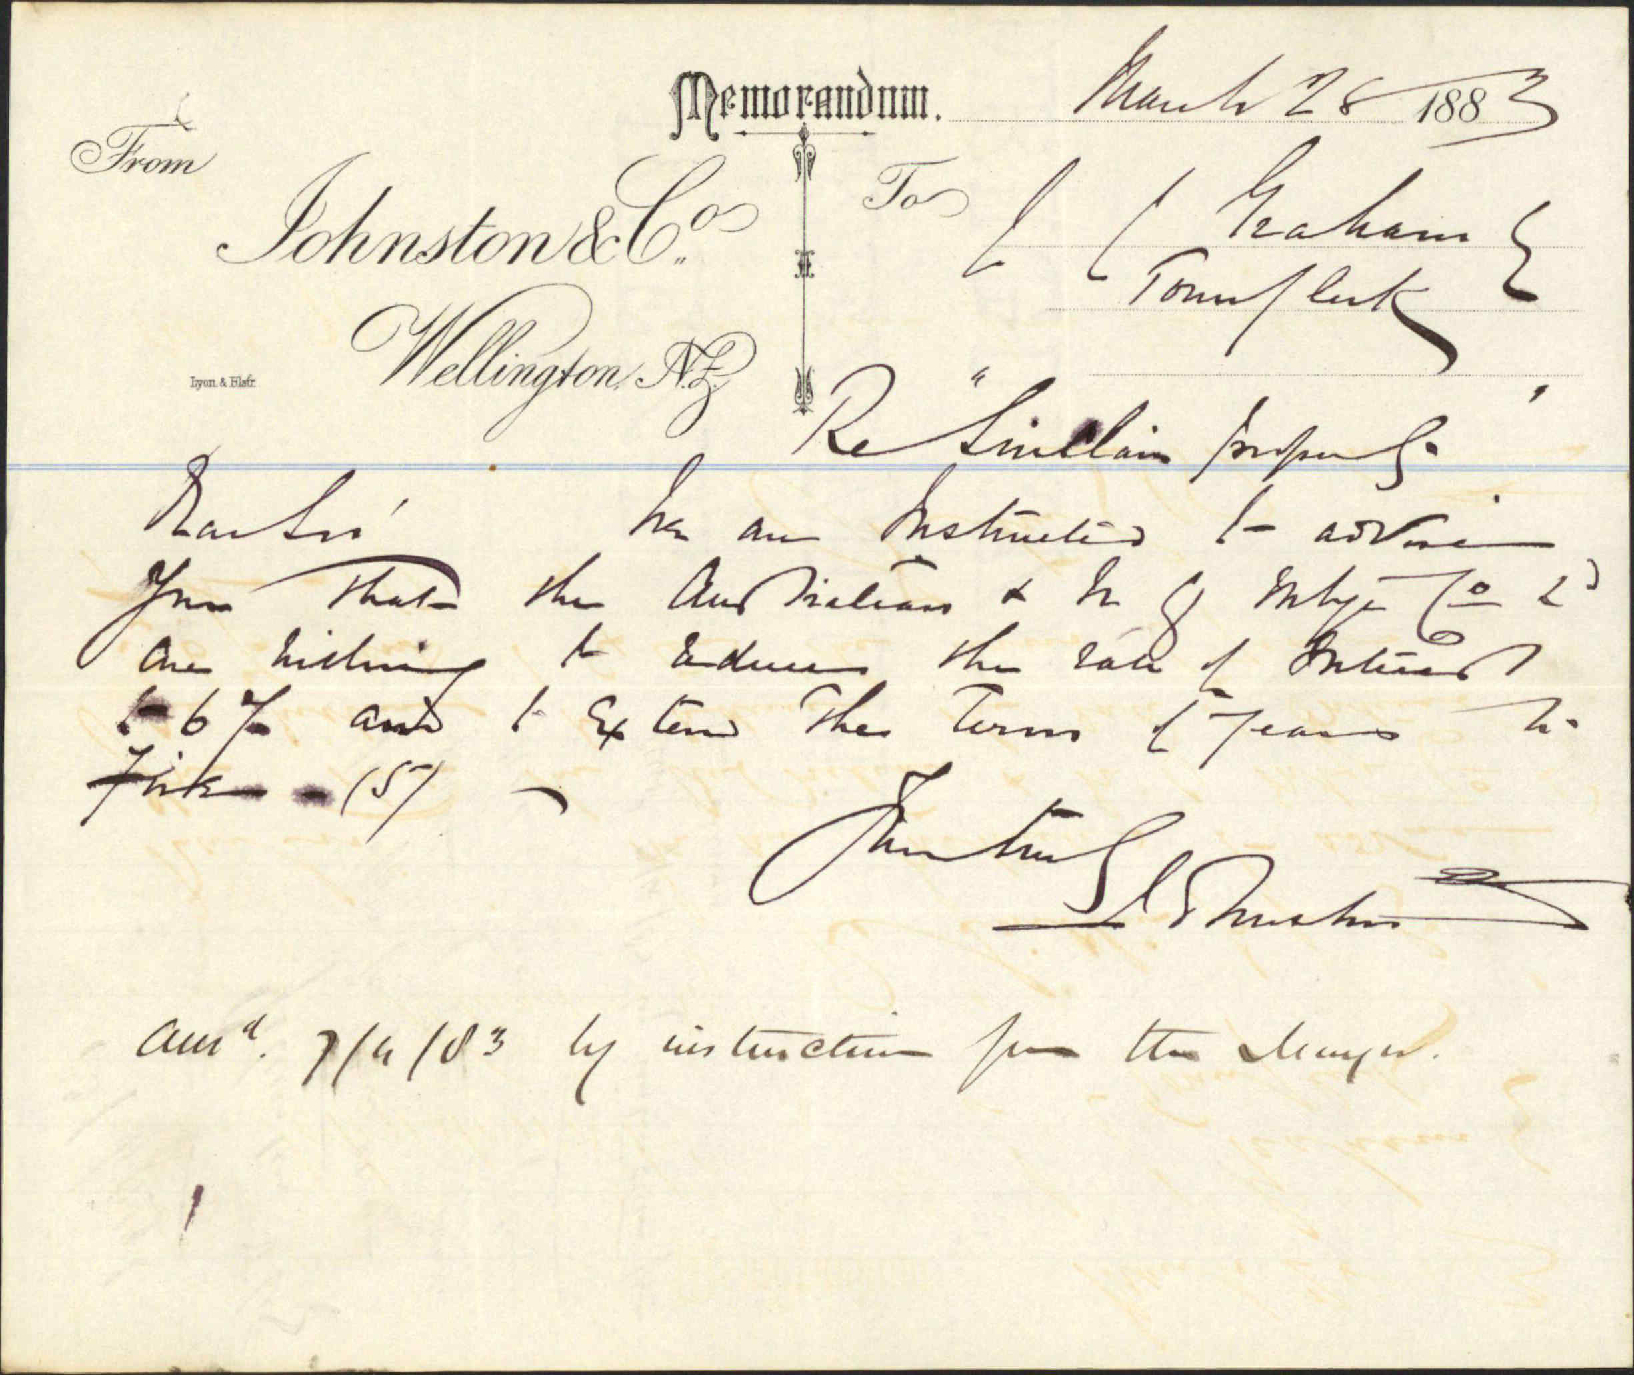 Memorandum.
March 28 1883
From
Johnston & Co.
Wellington, N.Z.
Lyon & Blair
To
Graham
Town Clerk
Re "Sinclair property"
Dear Sir We are Instructed to advise
You that the Australian & N Z Mtge Co Ld
are willing to reduce the rate of Interest
to 6% and to Extend the Term of Years to
Five (5)
Yours truly
Johnston
Ansd. 7/4/83 by instruction from the Mayor.